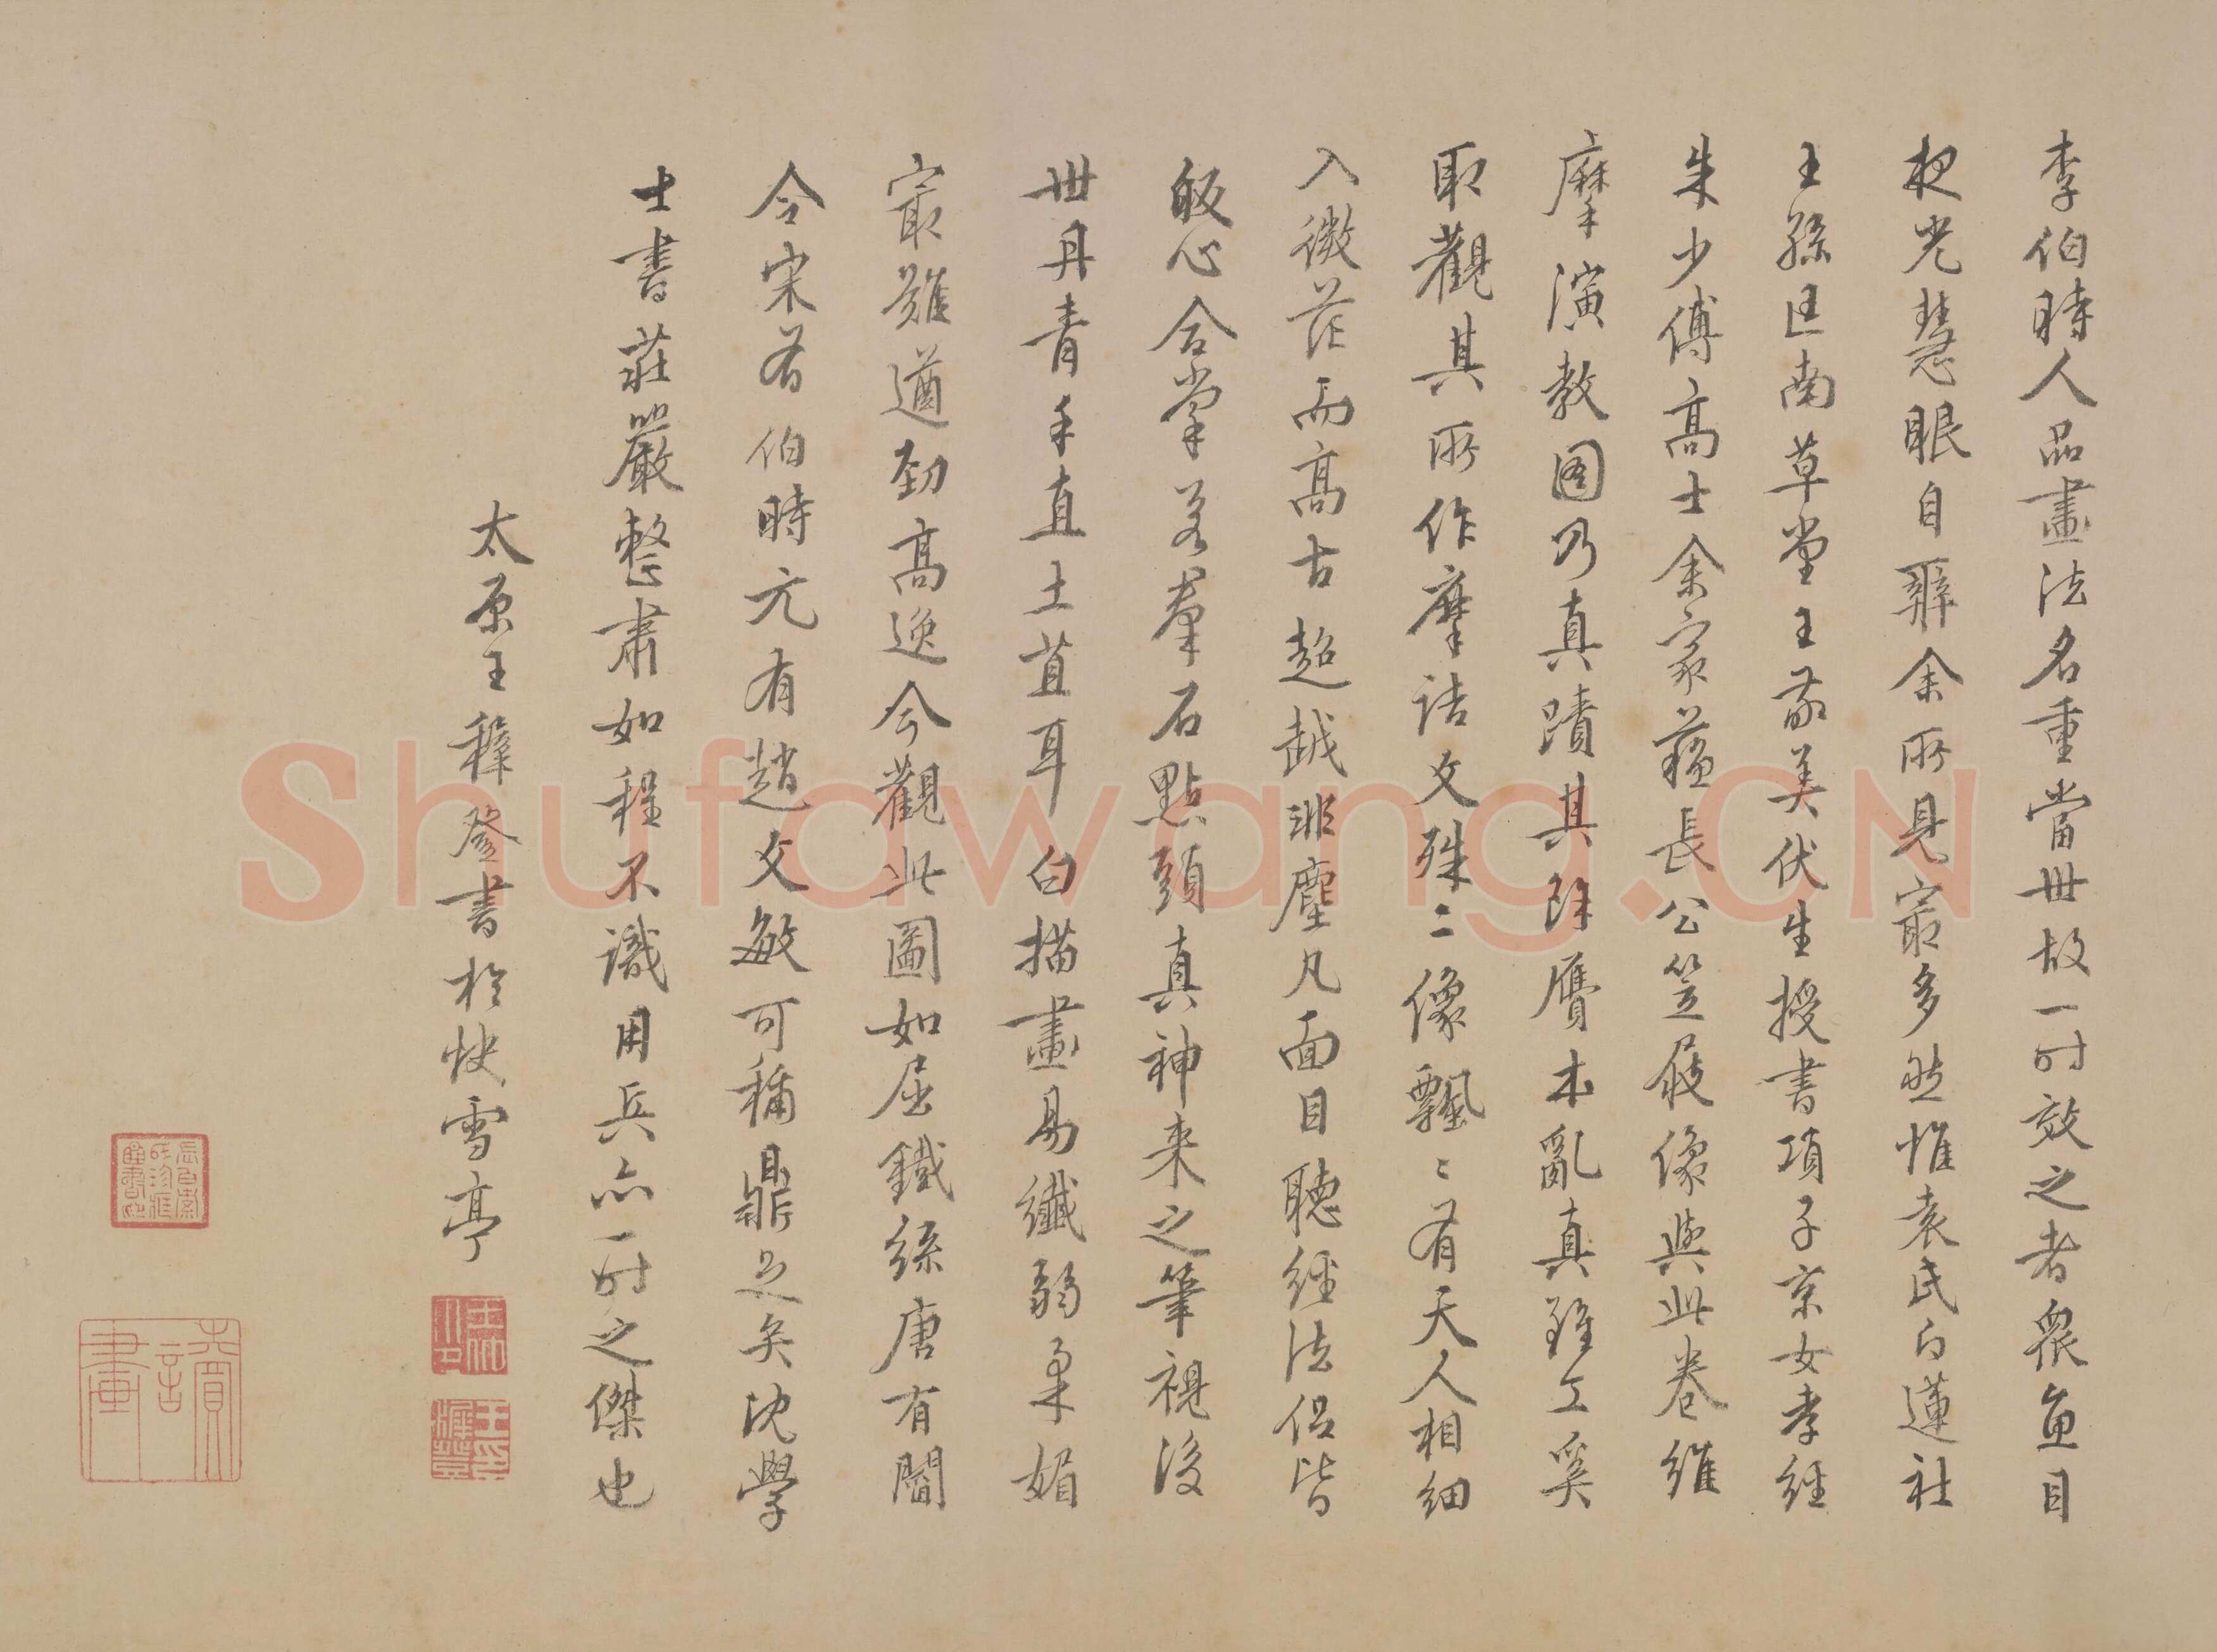 李伯時人品畫法名重當世故一时效之者衆魚目
夜光慧眼自辨余所見最多然惟袁氏白蓮社
王孫匡南草堂王敬美伏生授書項子京女孝經
朱少傅高士余家蘓長公笠屐像與此卷維
摩演教图乃真蹟其餘贋本亂真雖工奚
取觀其所作摩詰文殊二像飄〻有天人相細
入微茫而高古超越非塵凡面目聽經法侣皆
皈心合掌若羣石點頭真神来之筆視後
世丹青手直土苴耳白描畫易纖弱柔媚
最難遒勁高逸今觀此圖如屈鐵絲唐有閻
令宋有伯時元有趙文敏可稱鼎足矣沈學
士書莊嚴整肅如程不識用兵亦一时之傑也
太原王穉登書於快雪亭
Shufawang.CN